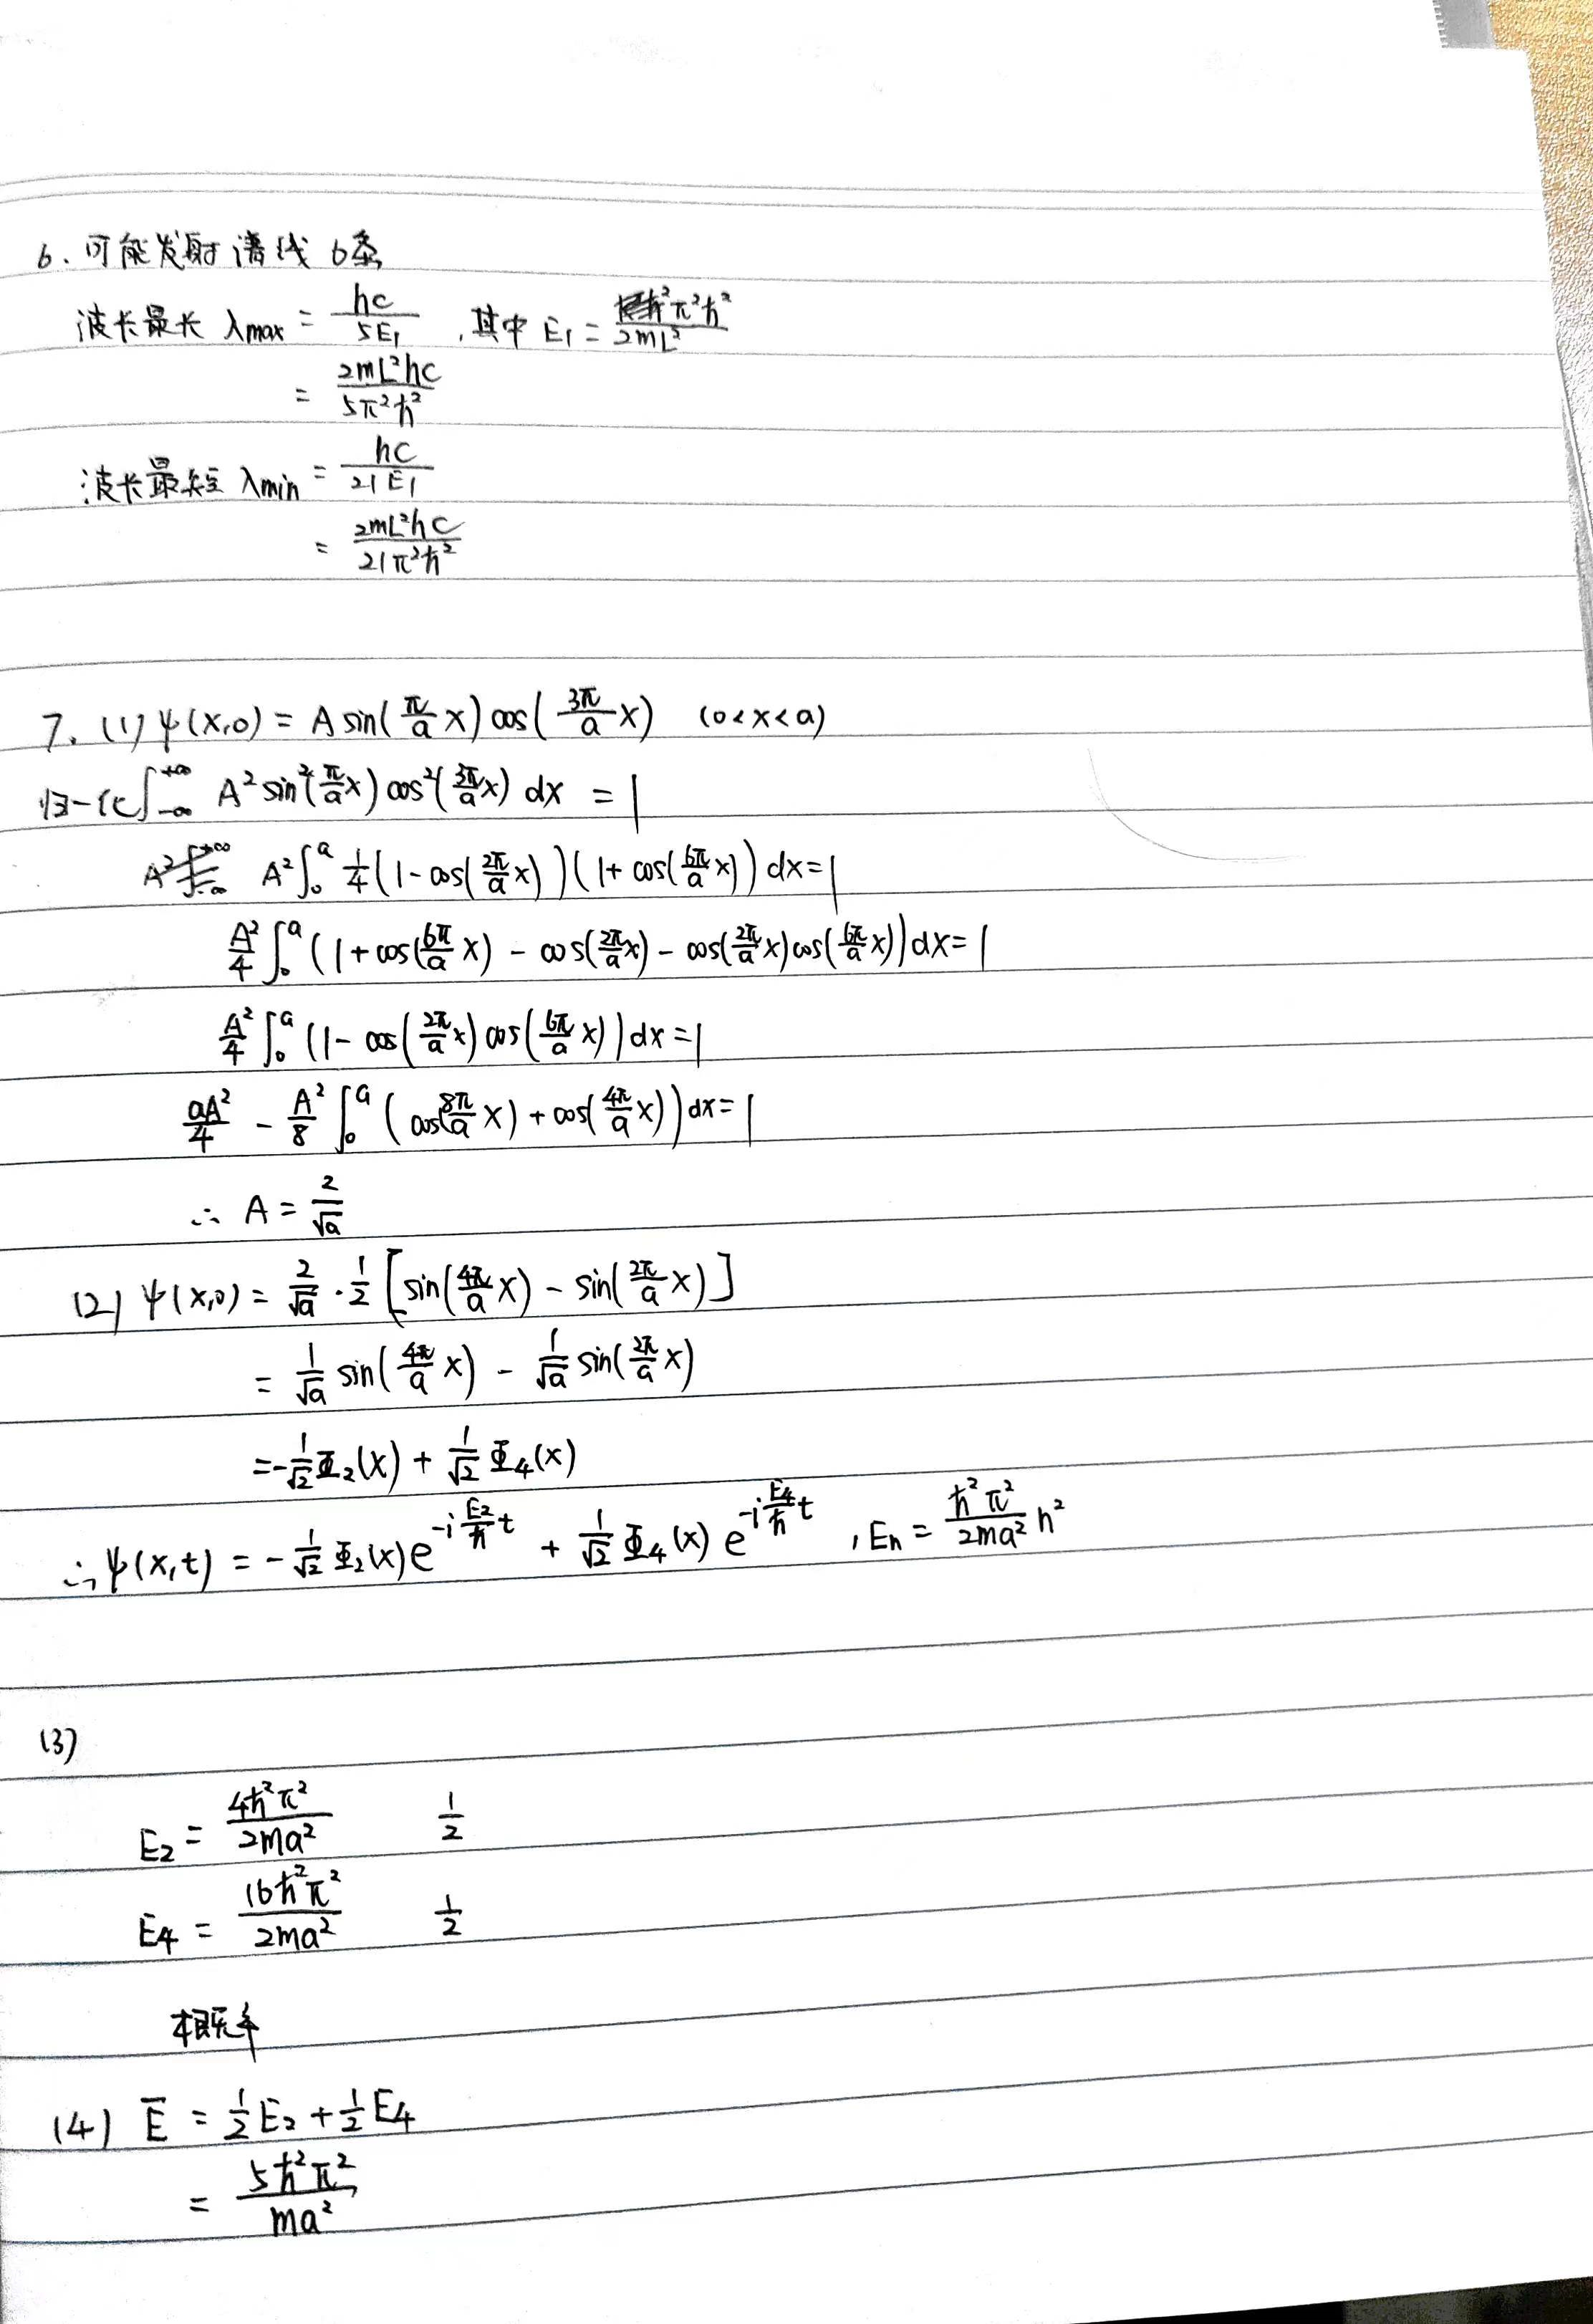 6. 可能发射谱线 6条
波长最长 λmax = hc/5E₁ , 其中 E₁ = π²ħ²/2mL²
= 2mL²hc/5π²ħ²
波长最短 λmin = hc/21E₁
= 2mL²hc/21π²ħ²
7. (1) ψ(x,0) = A sin(π/a x) cos(3π/a x) (0<x<a)
归一化 ∫₋∞^+∞ A² sin²(π/a x) cos²(3π/a x) dx = 1
A² ∫₀^a 1/4 (1 - cos(2π/a x)) (1 + cos(6π/a x)) dx = 1
A²/4 ∫₀^a (1 + cos(6π/a x) - cos(2π/a x) - cos(2π/a x) cos(6π/a x)) dx = 1
A²/4 ∫₀^a (1 - cos(2π/a x) cos(6π/a x)) dx = 1
aA²/4 - A²/8 ∫₀^a (cos(8π/a x) + cos(4π/a x)) dx = 1
∴ A = 2/√a
(2) ψ(x,0) = 2/√a · 1/2 [sin(4π/a x) - sin(2π/a x)]
= 1/√a sin(4π/a x) - 1/√a sin(2π/a x)
= -1/√2 Φ₂(x) + 1/√2 Φ₄(x)
∴ ψ(x,t) = -1/√2 Φ₂(x) e^(-i E₂/ħ t) + 1/√2 Φ₄(x) e^(-i E₄/ħ t) , Eₙ = ħ²π²/2ma² n²
(3)
E₂ = 4ħ²π²/2ma² 1/2
E₄ = 16ħ²π²/2ma² 1/2
概率
(4) E̅ = 1/2 E₂ + 1/2 E₄
= 5ħ²π²/ma²